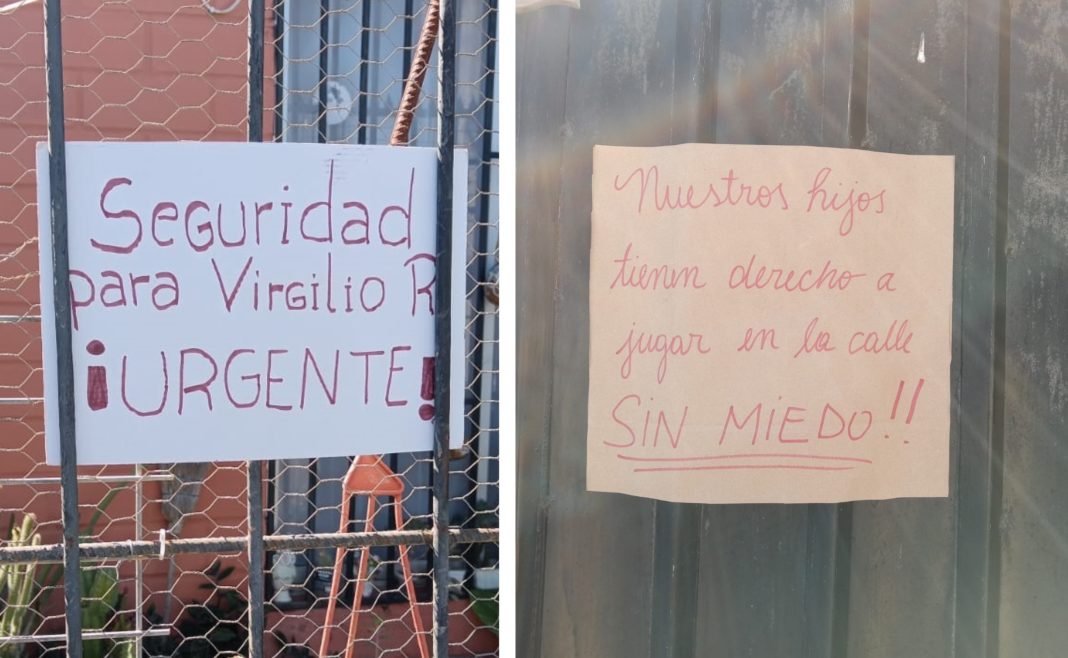 Seguridad
para Virgilio R
¡URGENTE!
Nuestros hijos
tienen derecho a
jugar en la calle
SIN MIEDO!!